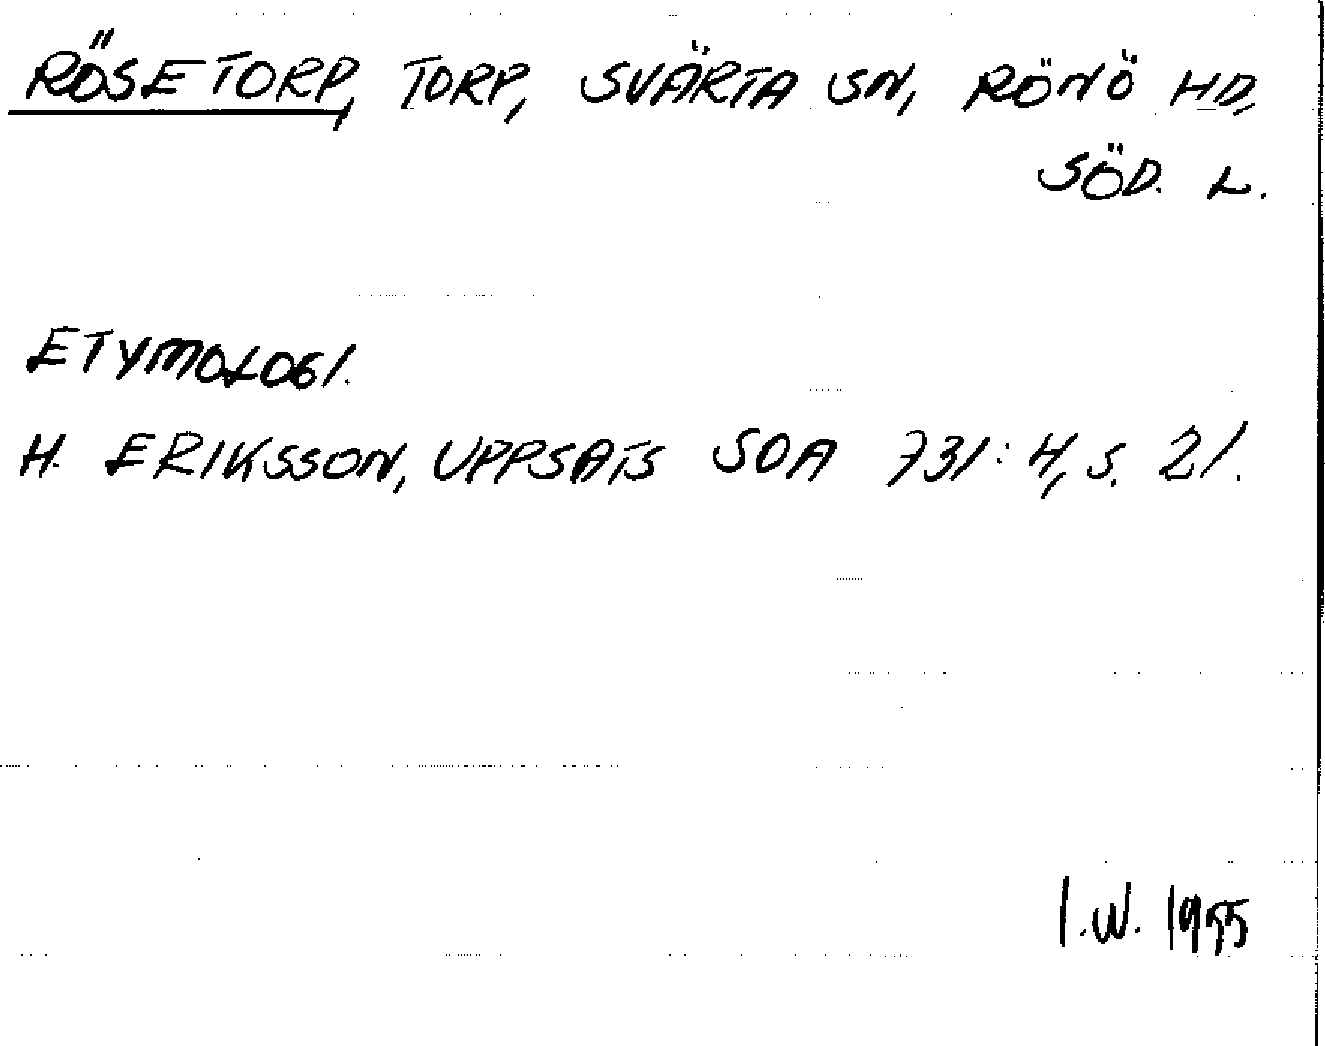 RÖSETORP, TORP, SVÄRTA SN, RÖNÖ HD,
SÖD. L.
ETYMOLOGI.
H. ERIKSSON, UPPSATS SOA 731:4, S. 21.
I.W. 1955